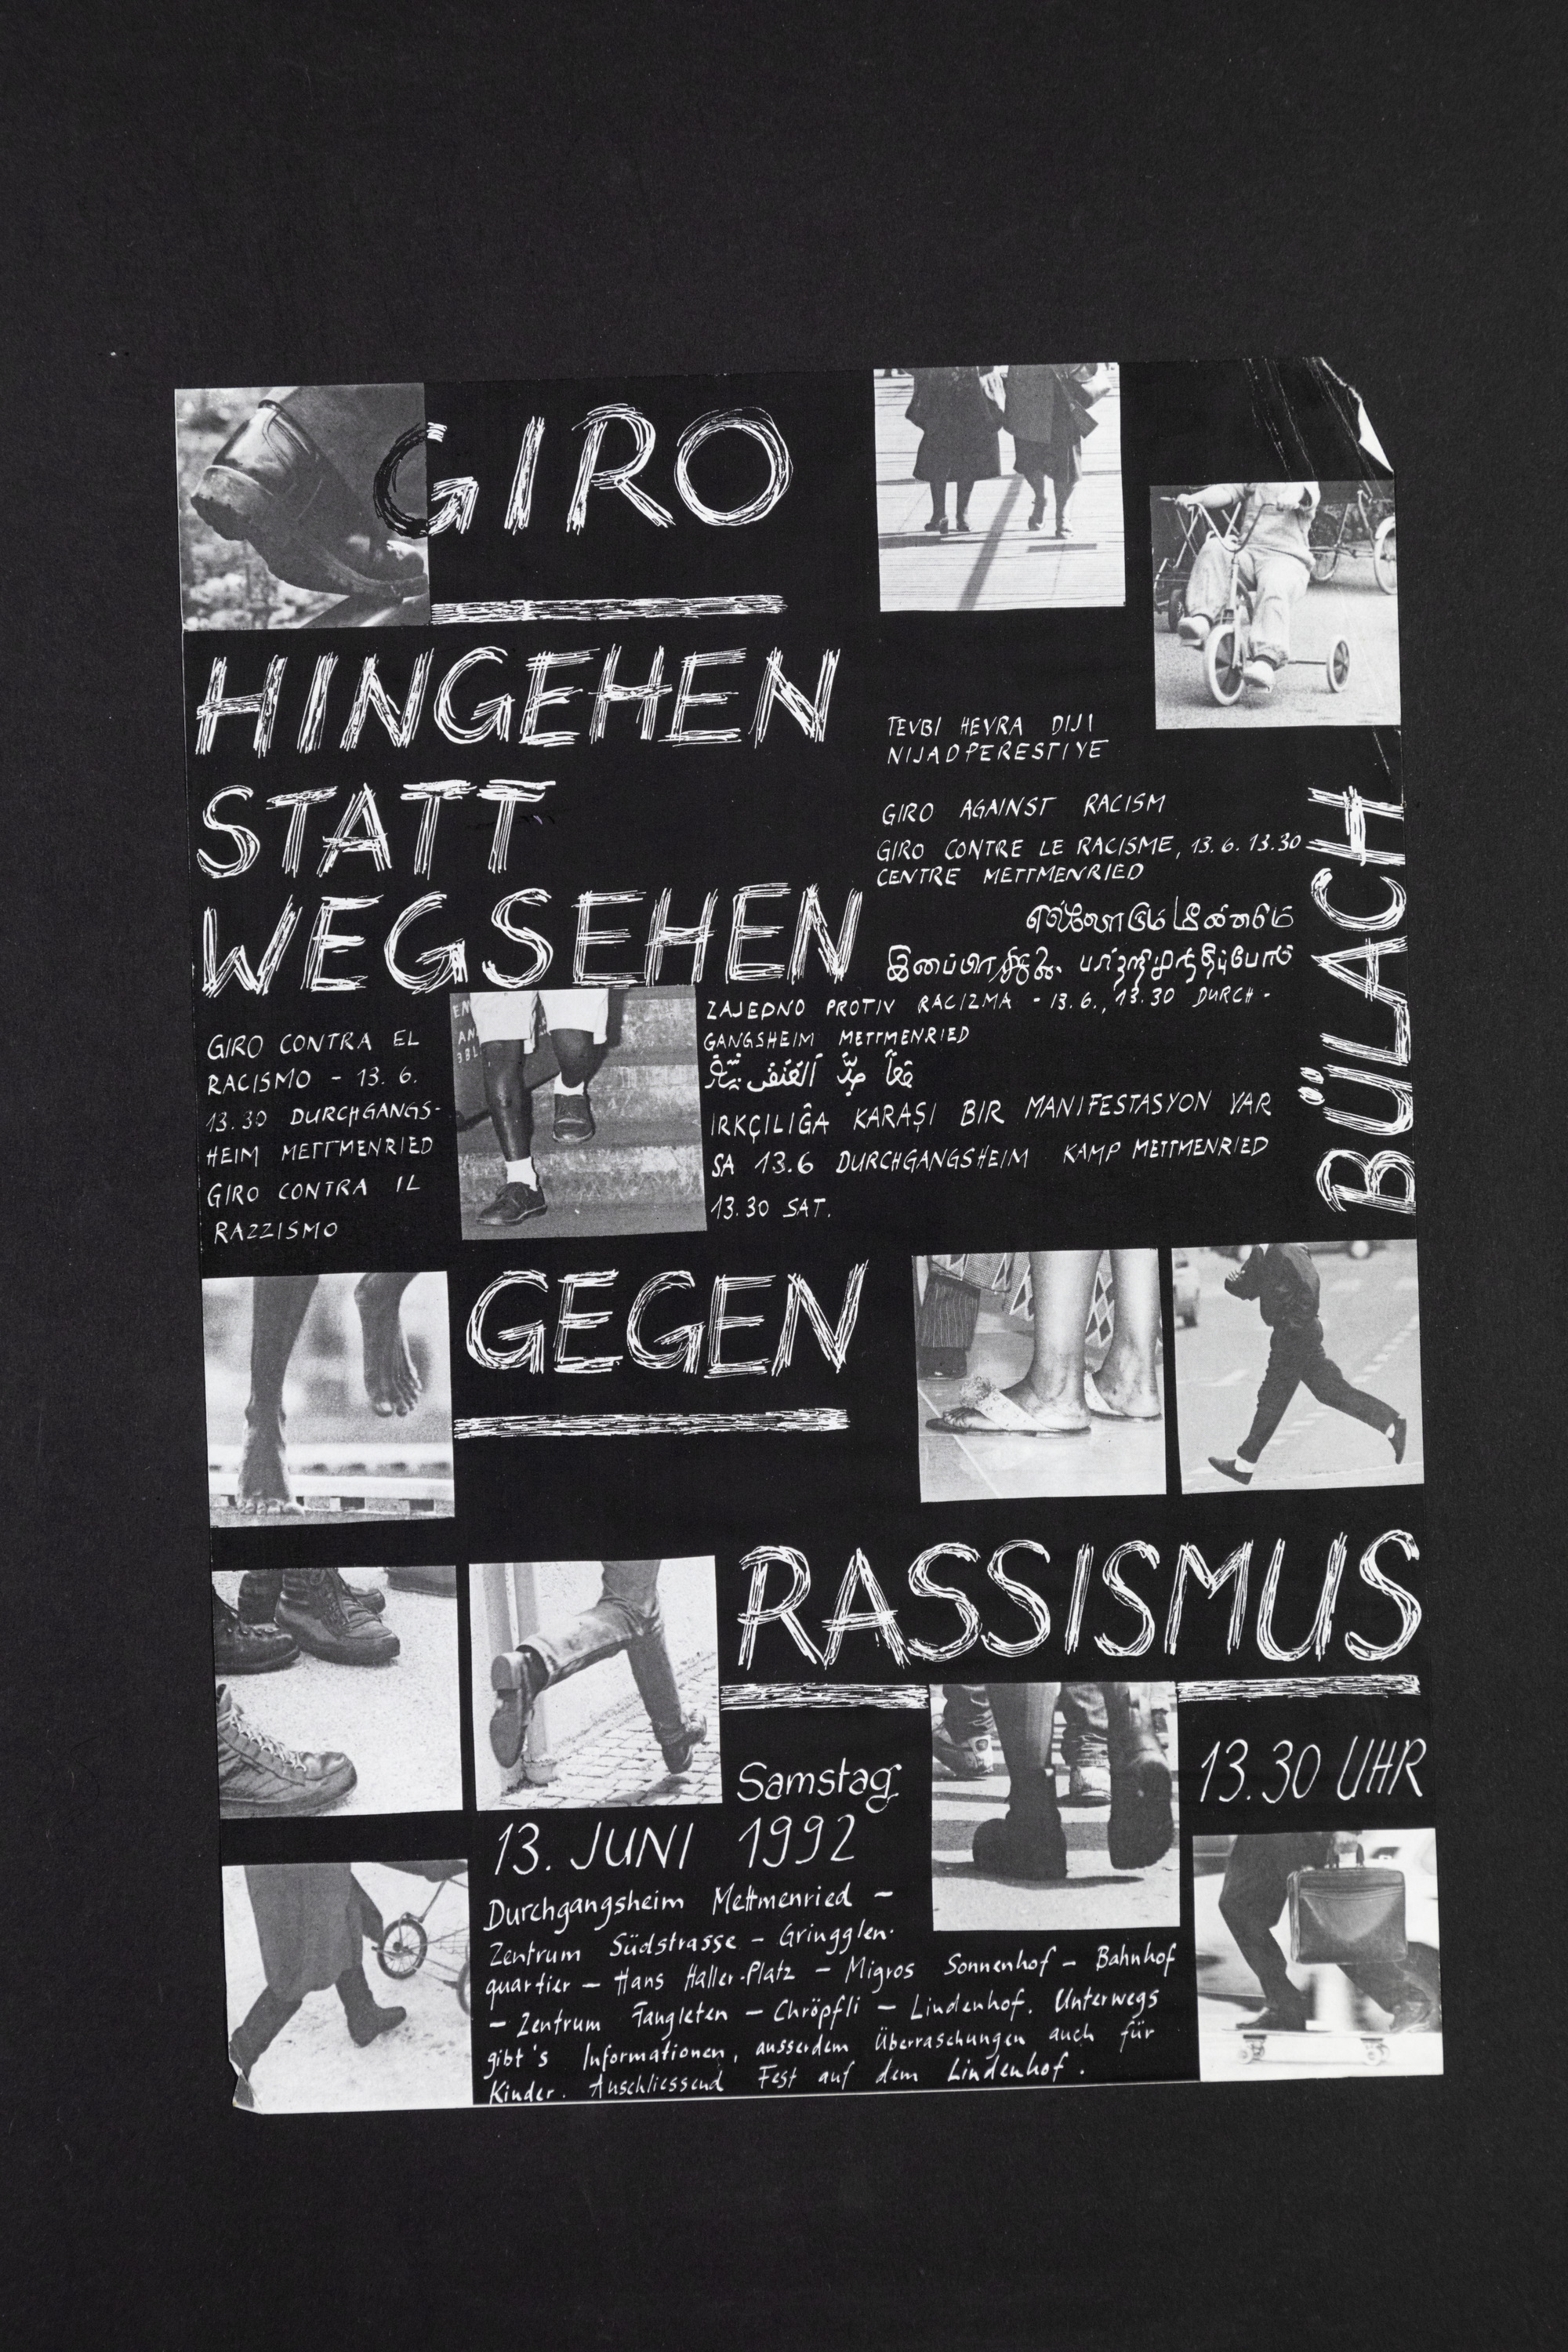 GIRO
HINGEHEN
STATT
WEGSEHEN
TEVBI HEVRA DIJI
NIJADPERESTIYE
GIRO AGAINST RACISM
GIRO CONTRE LE RACISME, 13.6. 13.30
CENTRE METTMENRIED
BÜLACH
ZAJEDNO PROTIV RACIZMA - 13.6., 13.30 DURCH-
GANGSHEIM METTMENRIED
IRKÇILIĜA KARAŞI BIR MANIFESTASYON VAR
SA 13.6 DURCHGANGSHEIM KAMP METTMENRIED
13.30 SAT.
GIRO CONTRA EL
RACISMO - 13. 6.
13.30 DURCHGANGS-
HEIM METTMENRIED
GIRO CONTRA IL
RAZZISMO
GEGEN
RASSISMUS
Samstag
13.30 UHR
13. JUNI 1992
Durchgangsheim Mettmenried –
Zentrum Südstrasse – Gringglen-
quartier – Hans Haller-Platz – Migros Sonnenhof – Bahnhof
– Zentrum Fangleten – Chröpfli – Lindenhof. Unterwegs
gibt's Informationen, ausserdem Überraschungen auch für
Kinder. Anschliessend Fest auf dem Lindenhof.